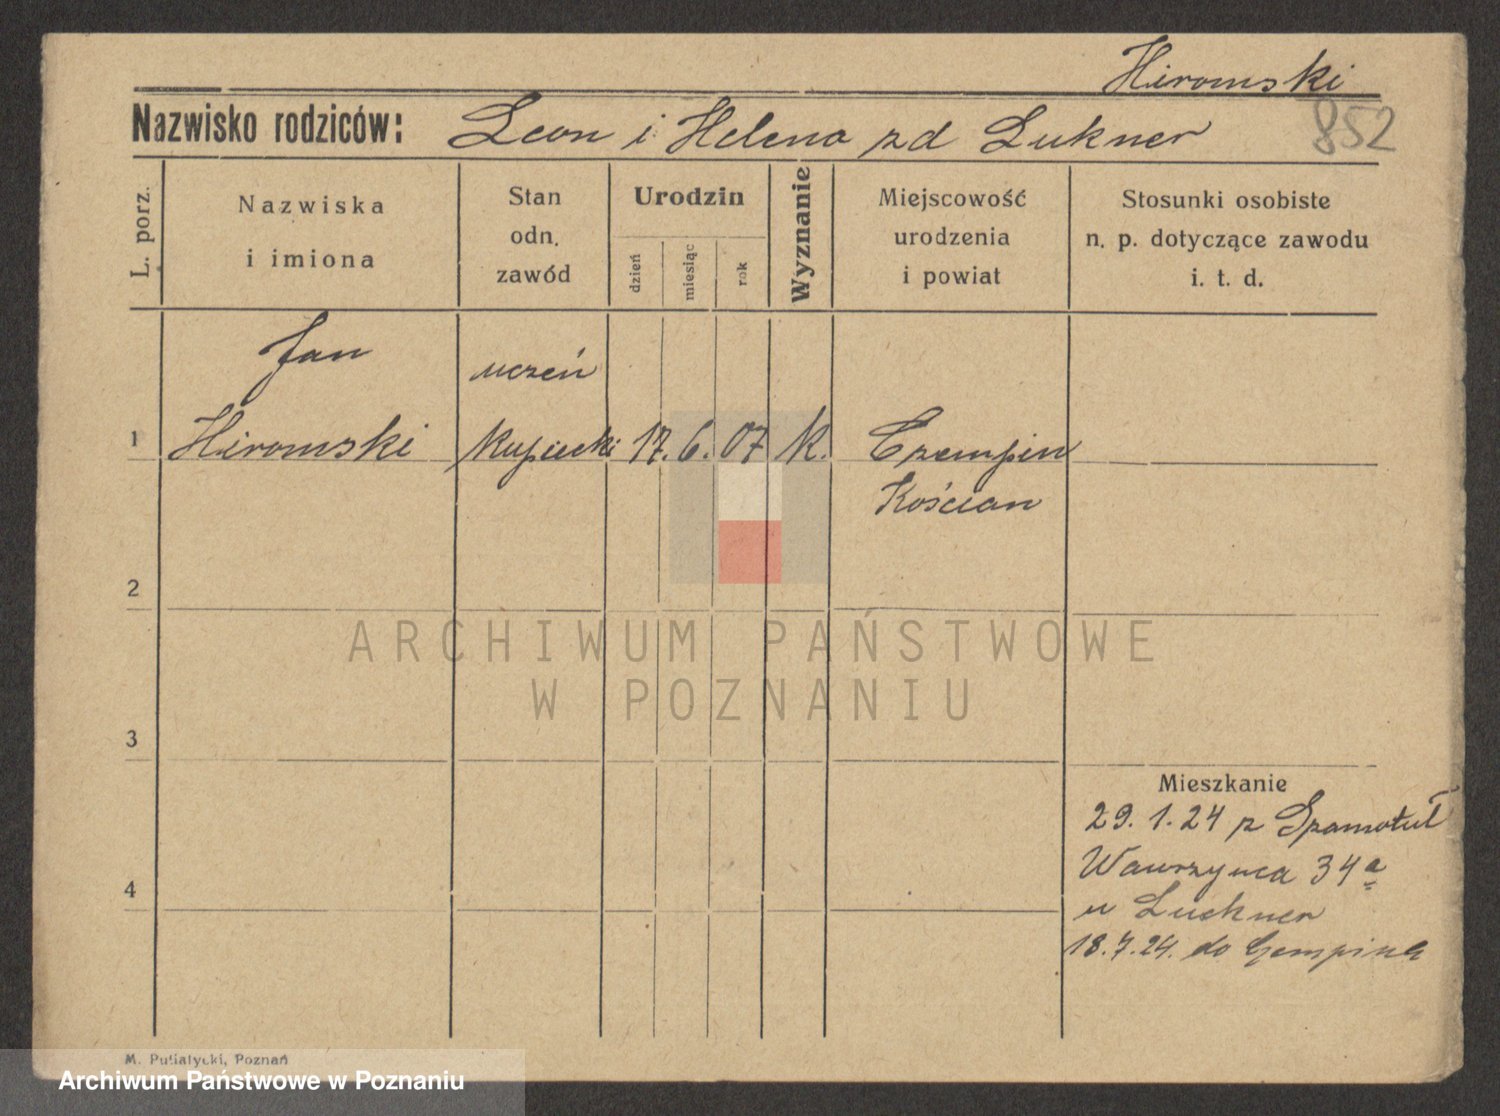 Hiromski
Nazwisko rodziców: Leon i Helena zd Lukner
852
L. porz.
Nazwiska
i imiona
Stan
odn.
zawód
Urodzin
dzień
miesiąc
rok
Wyznanie
Miejscowość
urodzenia
i powiat
Stosunki osobiste
n. p. dotyczące zawodu
i. t. d.
Jan uczeń
1 Hiromski kupiecki 17. 6. 07 k. Czempin
Kościan
2
ARCHIWUM PAŃSTWOWE
W POZNANIU
3
Mieszkanie
29. 1. 24 z Szamotuł
Wawrzyńca 34a
4
u Luckner
18. 7. 24. do Czempinia
M. Putiatycki, Poznań
Archiwum Państwowe w Poznaniu